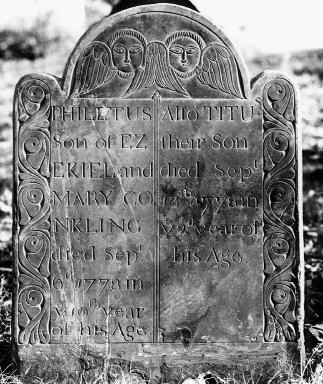 PHILETUS
Son of EZ
EKIEL and
MARY CO
NKLING
died Sept
6th 1778 in
10th year
of his Age.
Also TITUS
their Son
died Sept
13th 1778 in
year of
his Age.